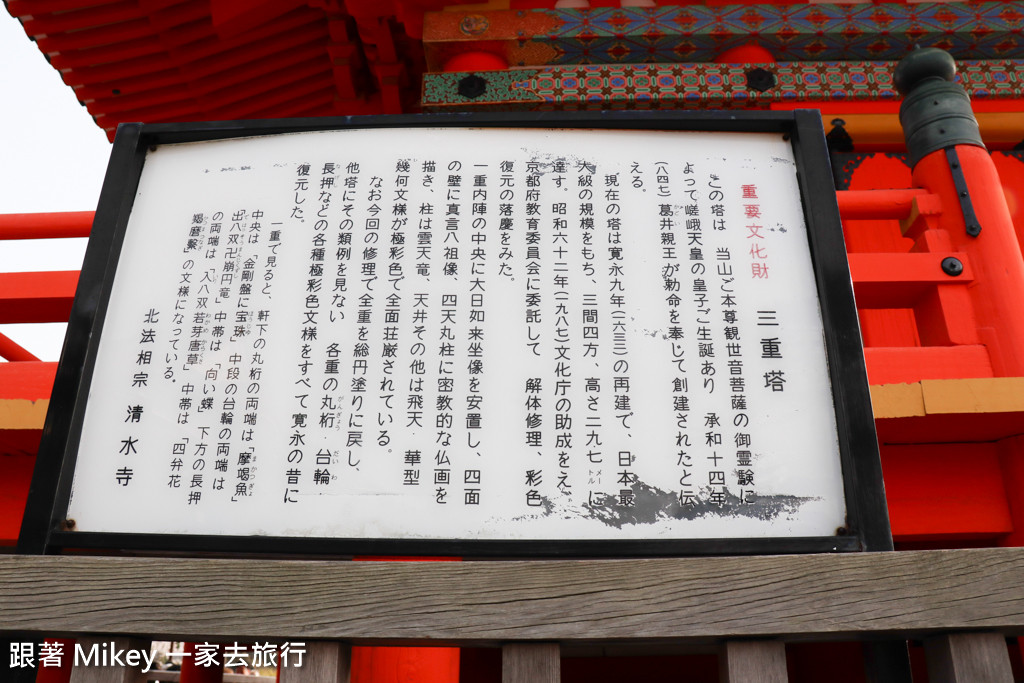 重要文化財 三重塔
この塔は 当山ご本尊観世音菩薩の御霊験に
よって嵯峨天皇の皇子ご生誕あり 承和十四年
(八四七) 葛井親王が勅命を奉じて創建されたと伝
える。
現在の塔は寛永九年(一六三二)の再建で、日本最
大級の規模をもち、三間四方、高さ二九七メートルに
達す。昭和六十二年(一九八七)文化庁の助成をえ
京都府教育委員会に委託して 解体修理、彩色
復元の落慶をみた。
一重内陣の中央に大日如来坐像を安置し、四面
の壁に真言八祖像、四天丸柱に密教的な仏画を
描き、柱は雲天竜、天井その他は飛天・華型
幾何文様が極彩色で全面荘厳されている。
なお今回の修理で全重を総円塗りに戻し、
他塔にその類例を見ない 各重の丸桁・台輪・
長押などの各種極彩色文様をすべて寛永の昔に
復元した。
一重で見ると、軒下の丸桁の両端は「摩竭魚」
中央は「金剛盤に宝珠」中段の台輪の両端は
「出八双卍崩円竜」中帯は「向い蝶」下方の長押
の両端は「入八双若芽唐草」中帯は「四弁花
羯磨繫」の文様になっている。
北法相宗 清水寺
跟著 Mikey 一家去旅行